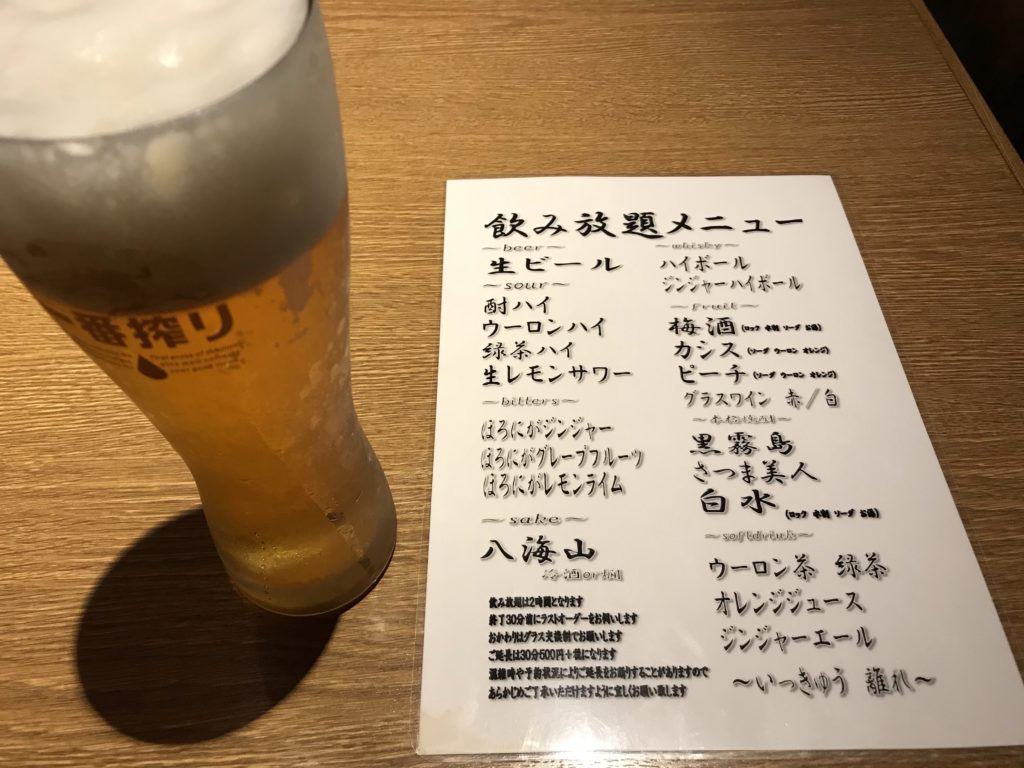 一番搾り
飲み放題メニュー
～beer～
生ビール
～sour～
酎ハイ
ウーロンハイ
緑茶ハイ
生レモンサワー
～bitters～
ほろにがジンジャー
ほろにがグレープフルーツ
ほろにがレモンライム
～sake～
八海山
冷酒or燗
飲み放題は2時間となります
終了30分前にラストオーダーをお伺いします
おかわりはグラス交換制でお願いします
ご延長は30分500円＋税になります
混雑時や予約状況によりご延長をお断りすることがありますので
あらかじめご了承いただけますように宜しくお願い致します
～whisky～
ハイボール
ジンジャーハイボール
～fruit～
梅酒(ロック 水割 ソーダ お湯)
カシス(ソーダ ウーロン オレンジ)
ピーチ(ソーダ ウーロン オレンジ)
グラスワイン 赤/白
～本格焼酎～
黒霧島
さつま美人
白水(ロック 水割 ソーダ お湯)
～softdrink～
ウーロン茶 緑茶
オレンジジュース
ジンジャーエール
～いっきゅう 離れ～